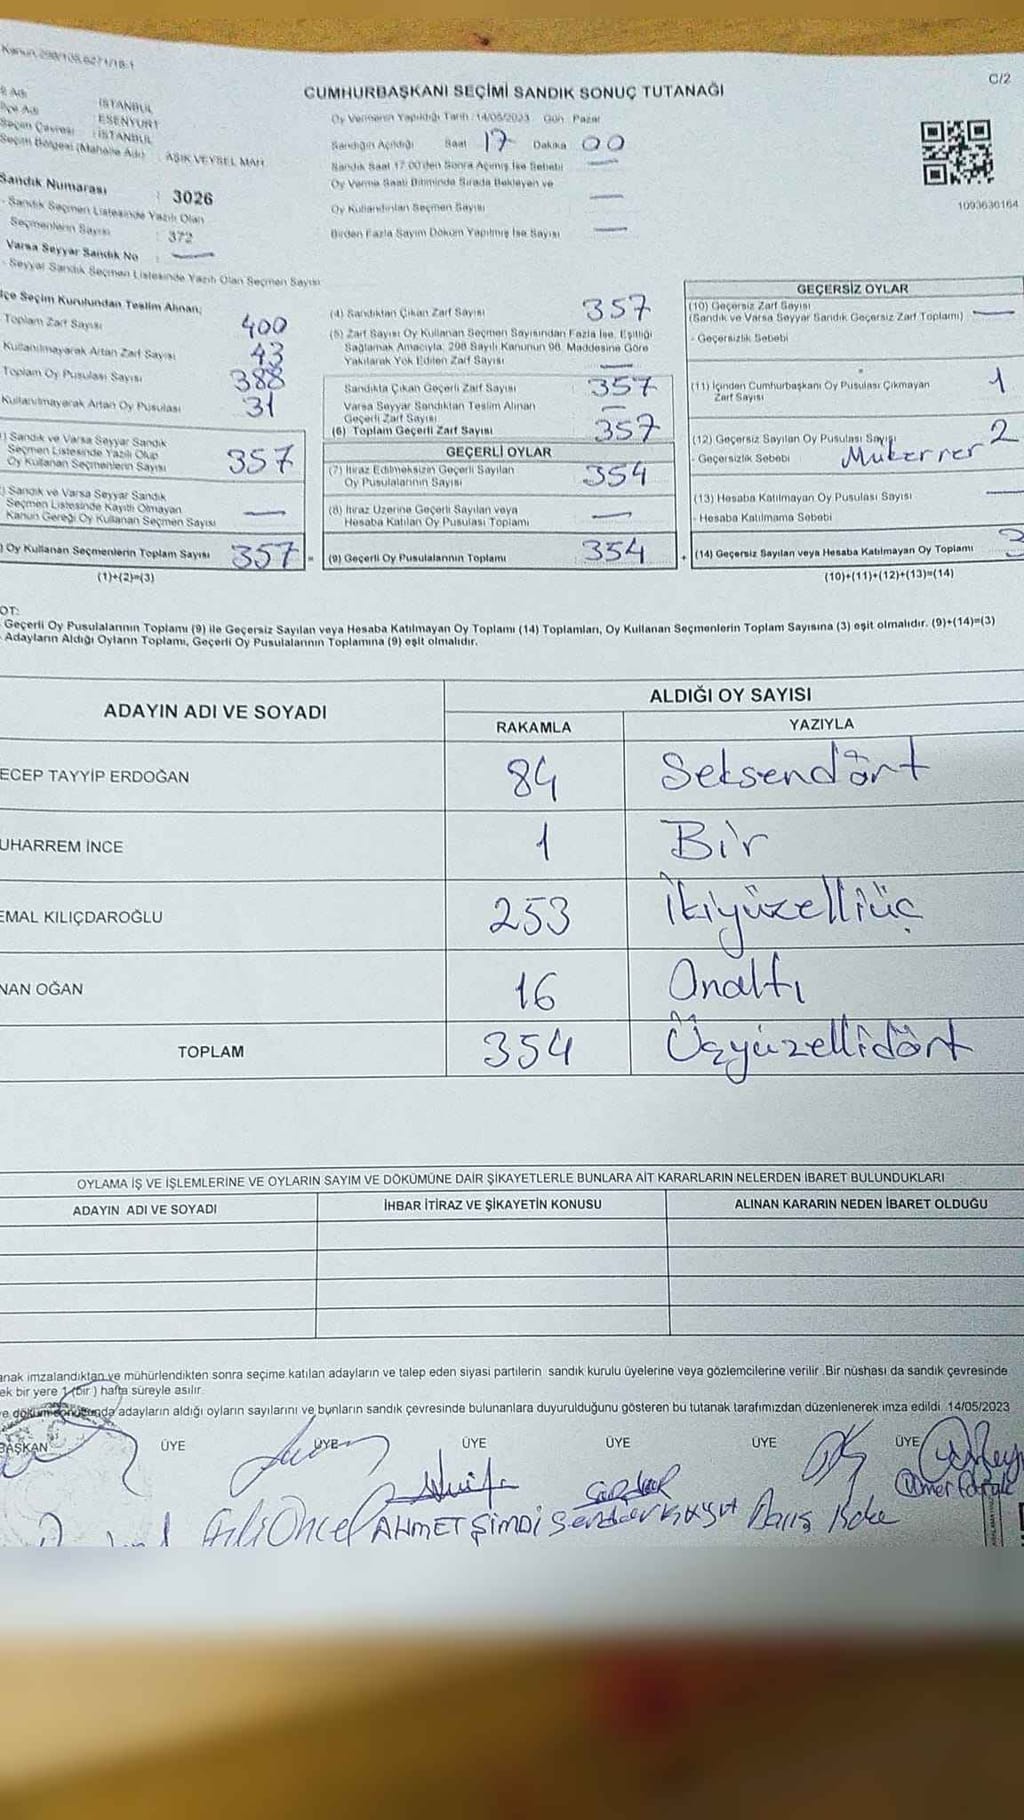 Kanun 298/105,6271/18-1
C/2
CUMHURBAŞKANI SEÇİMİ SANDIK SONUÇ TUTANAĞI
Adı İSTANBUL
lçe Adı ESENYURT
Seçim Çevresi : İSTANBUL
Seçim Bölgesi (Mahalle Adı) : AŞIK VEYSEL MAH.
Sandık Numarası : 3026
- Sandık Seçmen Listesinde Yazılı Olan
Seçmenlerin Sayısı : 372
Varsa Seyyar Sandık No :
- Seyyar Sandık Seçmen Listesinde Yazılı Olan Seçmen Sayısı
Oy Vermenin Yapıldığı Tarih : 14/05/2023 Gün : Pazar
Sandığın Açıldığı Saat 17 Dakika 00
Sandık Saat 17:00'den Sonra Açılmış İse Sebebi
Oy Verme Saati Bitiminde Sırada Bekleyen ve
Oy Kullandırılan Seçmen Sayısı
Birden Fazla Sayım Döküm Yapılmış İse Sayısı
1093630164
lçe Seçim Kurulundan Teslim Alınan;
Toplam Zarf Sayısı 400
Kullanılmayarak Artan Zarf Sayısı 43
Toplam Oy Pusulası Sayısı 388
Kullanılmayarak Artan Oy Pusulası 31
) Sandık ve Varsa Seyyar Sandık
Seçmen Listesinde Yazılı Olup
Oy Kullanan Seçmenlerin Sayısı 357
) Sandık ve Varsa Seyyar Sandık
Seçmen Listesinde Kayıtlı Olmayan
Kanun Gereği Oy Kullanan Seçmen Sayısı
) Oy Kullanan Seçmenlerin Toplam Sayısı 357 =
(1)+(2)=(3)
(4) Sandıktan Çıkan Zarf Sayısı 357
(5) Zarf Sayısı Oy Kullanan Seçmen Sayısından Fazla İse, Eşitliği
Sağlamak Amacıyla, 298 Sayılı Kanunun 98. Maddesine Göre
Yakılarak Yok Edilen Zarf Sayısı
Sandıkta Çıkan Geçerli Zarf Sayısı 357
Varsa Seyyar Sandıktan Teslim Alınan
Geçerli Zarf Sayısı
(6) Toplam Geçerli Zarf Sayısı 357
GEÇERLİ OYLAR
(7) İtiraz Edilmeksizin Geçerli Sayılan
Oy Pusulalarının Sayısı 354
(8) İtiraz Üzerine Geçerli Sayılan veya
Hesaba Katılan Oy Pusulası Toplamı
(9) Geçerli Oy Pusulalarının Toplamı 354 +
GEÇERSİZ OYLAR
(10) Geçersiz Zarf Sayısı
(Sandık ve Varsa Seyyar Sandık Geçersiz Zarf Toplamı)
- Geçersizlik Sebebi
(11) İçinden Cumhurbaşkanı Oy Pusulası Çıkmayan
Zarf Sayısı 1
(12) Geçersiz Sayılan Oy Pusulası Sayısı 2
- Geçersizlik Sebebi Mükerrer
(13) Hesaba Katılmayan Oy Pusulası Sayısı
- Hesaba Katılmama Sebebi
(14) Geçersiz Sayılan veya Hesaba Katılmayan Oy Toplamı 3
(10)+(11)+(12)+(13)=(14)
OT:
Geçerli Oy Pusulalarının Toplamı (9) ile Geçersiz Sayılan veya Hesaba Katılmayan Oy Toplamı (14) Toplamları, Oy Kullanan Seçmenlerin Toplam Sayısına (3) eşit olmalıdır. (9)+(14)=(3)
Adayların Aldığı Oyların Toplamı, Geçerli Oy Pusulalarının Toplamına (9) eşit olmalıdır.
ADAYIN ADI VE SOYADI ALDIĞI OY SAYISI
RAKAMLA YAZIYLA
ECEP TAYYİP ERDOĞAN 84 Seksendört
UHARREM İNCE 1 Bir
EMAL KILIÇDAROĞLU 253 İkiyüzelliüç
NAN OĞAN 16 Onaltı
TOPLAM 354 Üçyüzellidört
OYLAMA İŞ VE İŞLEMLERİNE VE OYLARIN SAYIM VE DÖKÜMÜNE DAİR ŞİKAYETLERLE BUNLARA AİT KARARLARIN NELERDEN İBARET BULUNDUKLARI
ADAYIN ADI VE SOYADI İHBAR İTİRAZ VE ŞİKAYETİN KONUSU ALINAN KARARIN NEDEN İBARET OLDUĞU
anak imzalandıktan ve mühürlendikten sonra seçime katılan adayların ve talep eden siyasi partilerin sandık kurulu üyelerine veya gözlemcilerine verilir .Bir nüshası da sandık çevresinde
ek bir yere 1 (bir ) hafta süreyle asılır.
ve döküm sonucunda adayların aldığı oyların sayılarını ve bunların sandık çevresinde bulunanlara duyurulduğunu gösteren bu tutanak tarafımızdan düzenlenerek imza edildi. 14/05/2023
BAŞKAN ÜYE ÜYE ÜYE ÜYE ÜYE ÜYE
AHMET ŞİMDİ Serdar Barış